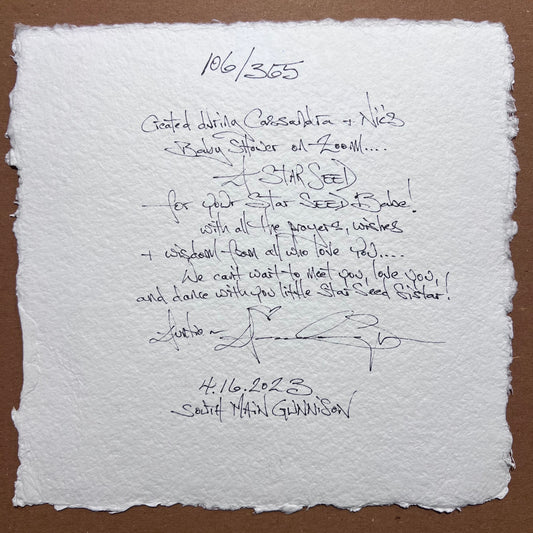 106/365
Created during Cassandra + Nic's
Baby Shower on Zoom....
A STAR SEED
for your Star SEED Babe!
with all the prayers, wishes
+ wisdom from all who love you....
We can't wait to meet you, love you,
and dance with you little Star Seed Sistar!
Auntie ~
4.16.2023
SOUTH MAIN GUNNISON